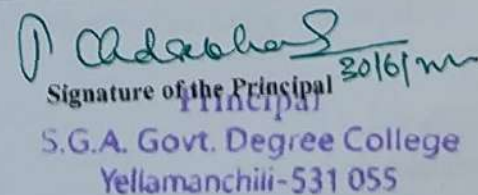 30/6/
Signature of the Principal
Principal
S.G.A. Govt. Degree College
Yellamanchili-531 055